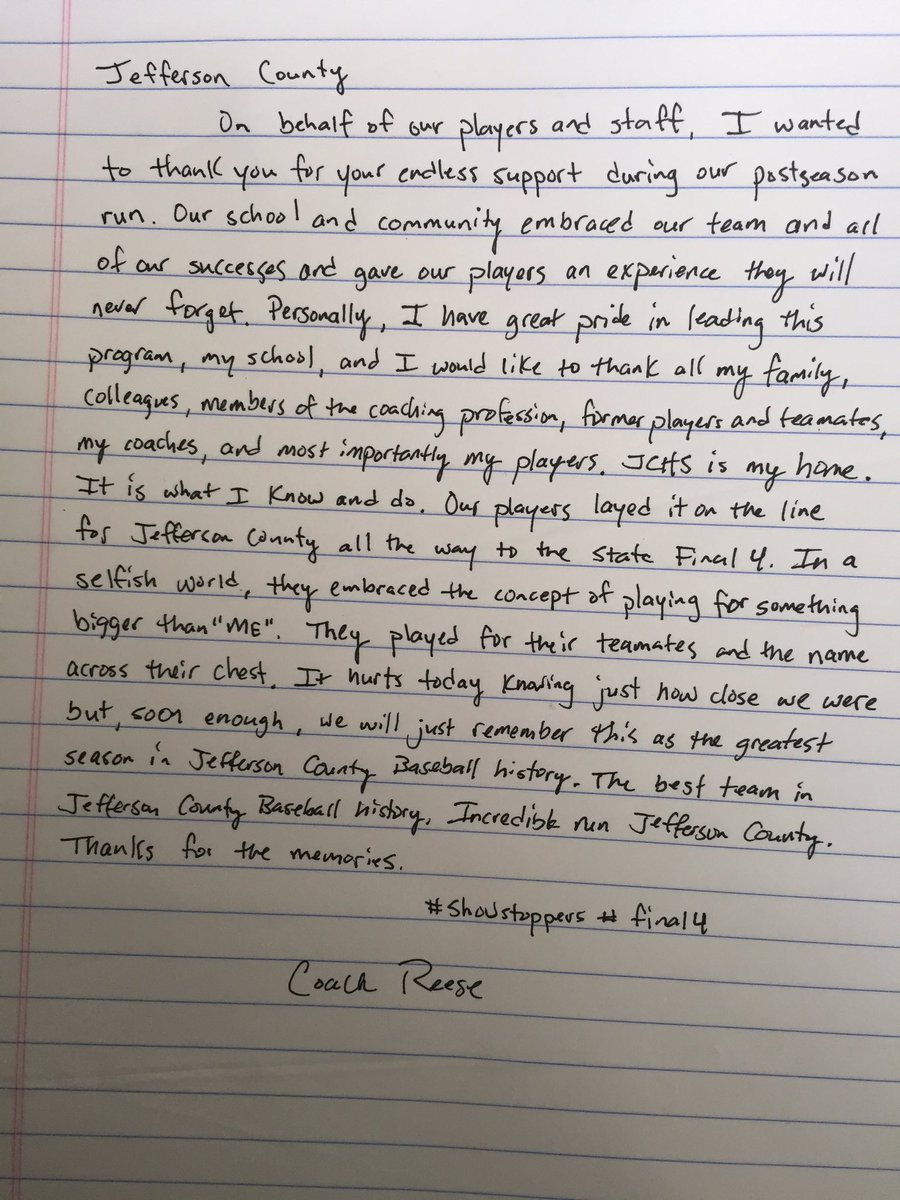 Jefferson County
On behalf of our players and staff, I wanted
to thank you for your endless support during our postseason
run. Our school and community embraced our team and all
of our successes and gave our players an experience they will
never forget. Personally, I have great pride in leading this
program, my school, and I would like to thank all my family,
colleagues, members of the coaching profession, former players and teamates,
my coaches, and most importantly my players. JCHS is my home.
It is what I know and do. Our players layed it on the line
for Jefferson County all the way to the State Final 4. In a
selfish world, they embraced the concept of playing for something
bigger than "ME". They played for their teamates and the name
across their chest. It hurts today knowing just how close we were
but, soon enough, we will just remember this as the greatest
season in Jefferson County Baseball history. The best team in
Jefferson County Baseball history. Incredible run Jefferson County.
Thanks for the memories.
#Showstoppers # final4
Coach Reese